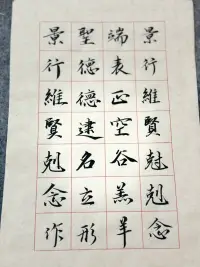 景行維賢剋念作
聖德德建名立形
端表正空谷羔羊
景行維賢尅剋念